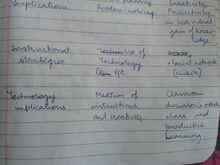 Implications
Problem-solving
Creativity.
Productivity
in individual
gain of know-
edge
Instructional
strategies
Use of
Technology
PPt.
social network
(wikis)
Technology
implications
Medium of
instructions,
and creativity.
Classroom
discussion and
class and
productive
Learning.